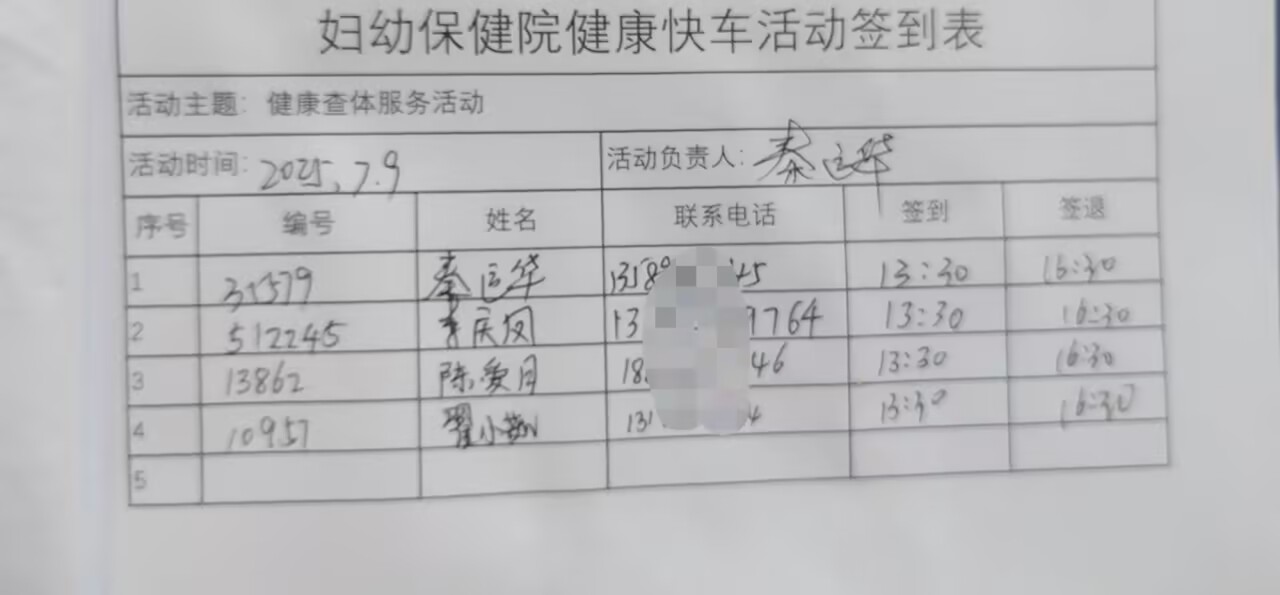 妇幼保健院健康快车活动签到表
活动主题: 健康查体服务活动
活动时间: 2025.7.9 活动负责人: 秦运华
序号 编号 姓名 联系电话 签到 签退
1 31579 秦运华 13:30 16:30
2 512245 李庆凤 13 9764 13:30 16:30
3 13862 陈爱月 18 46 13:30 16:30
4 10957 翟小 13 4 13:30 16:30
5